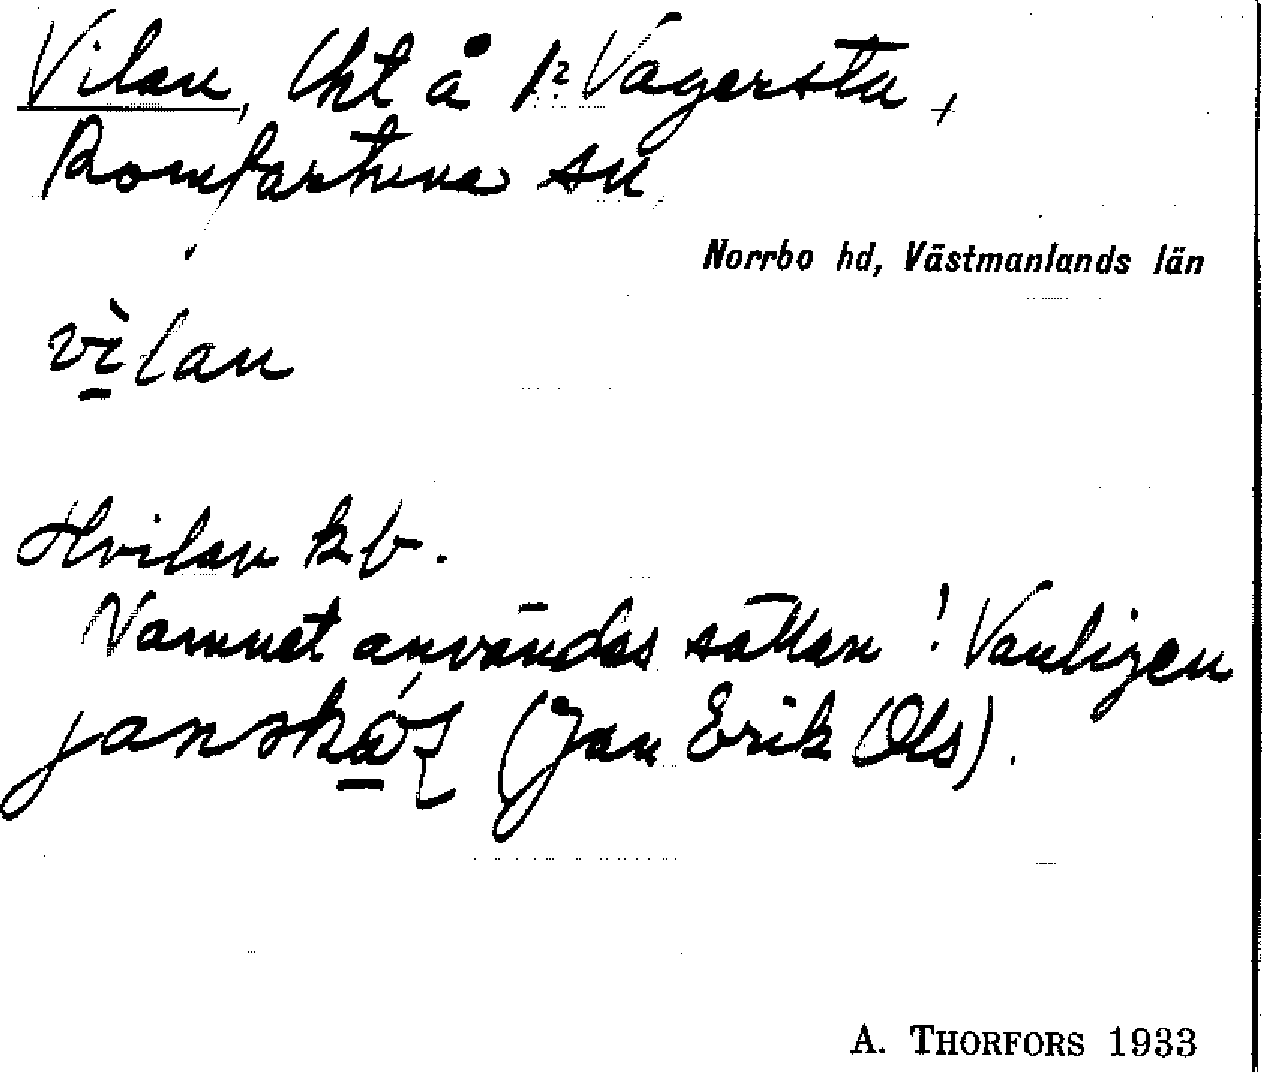 Vilan, lht å 1:2 Vagersta,
Romfartuna sn
Norrbo hd, Västmanlands län
vìlan
Hvilan kb.
Namnet användes sällan! Vanligen
(Jan Erik Ols).
A. THORFORS 1933